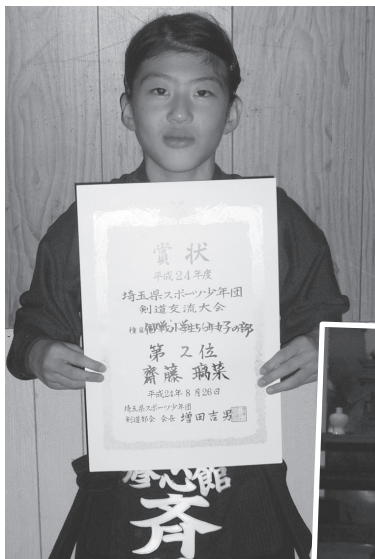 賞状
平成24年度
埼玉県スポーツ少年団
剣道交流大会
種目 個戦 小学生5年女子の部
第2位
齋藤 瑞菜
平成24年8月26日
埼玉県スポーツ少年団
剣道部会 会長 増田吉男
心館
斉